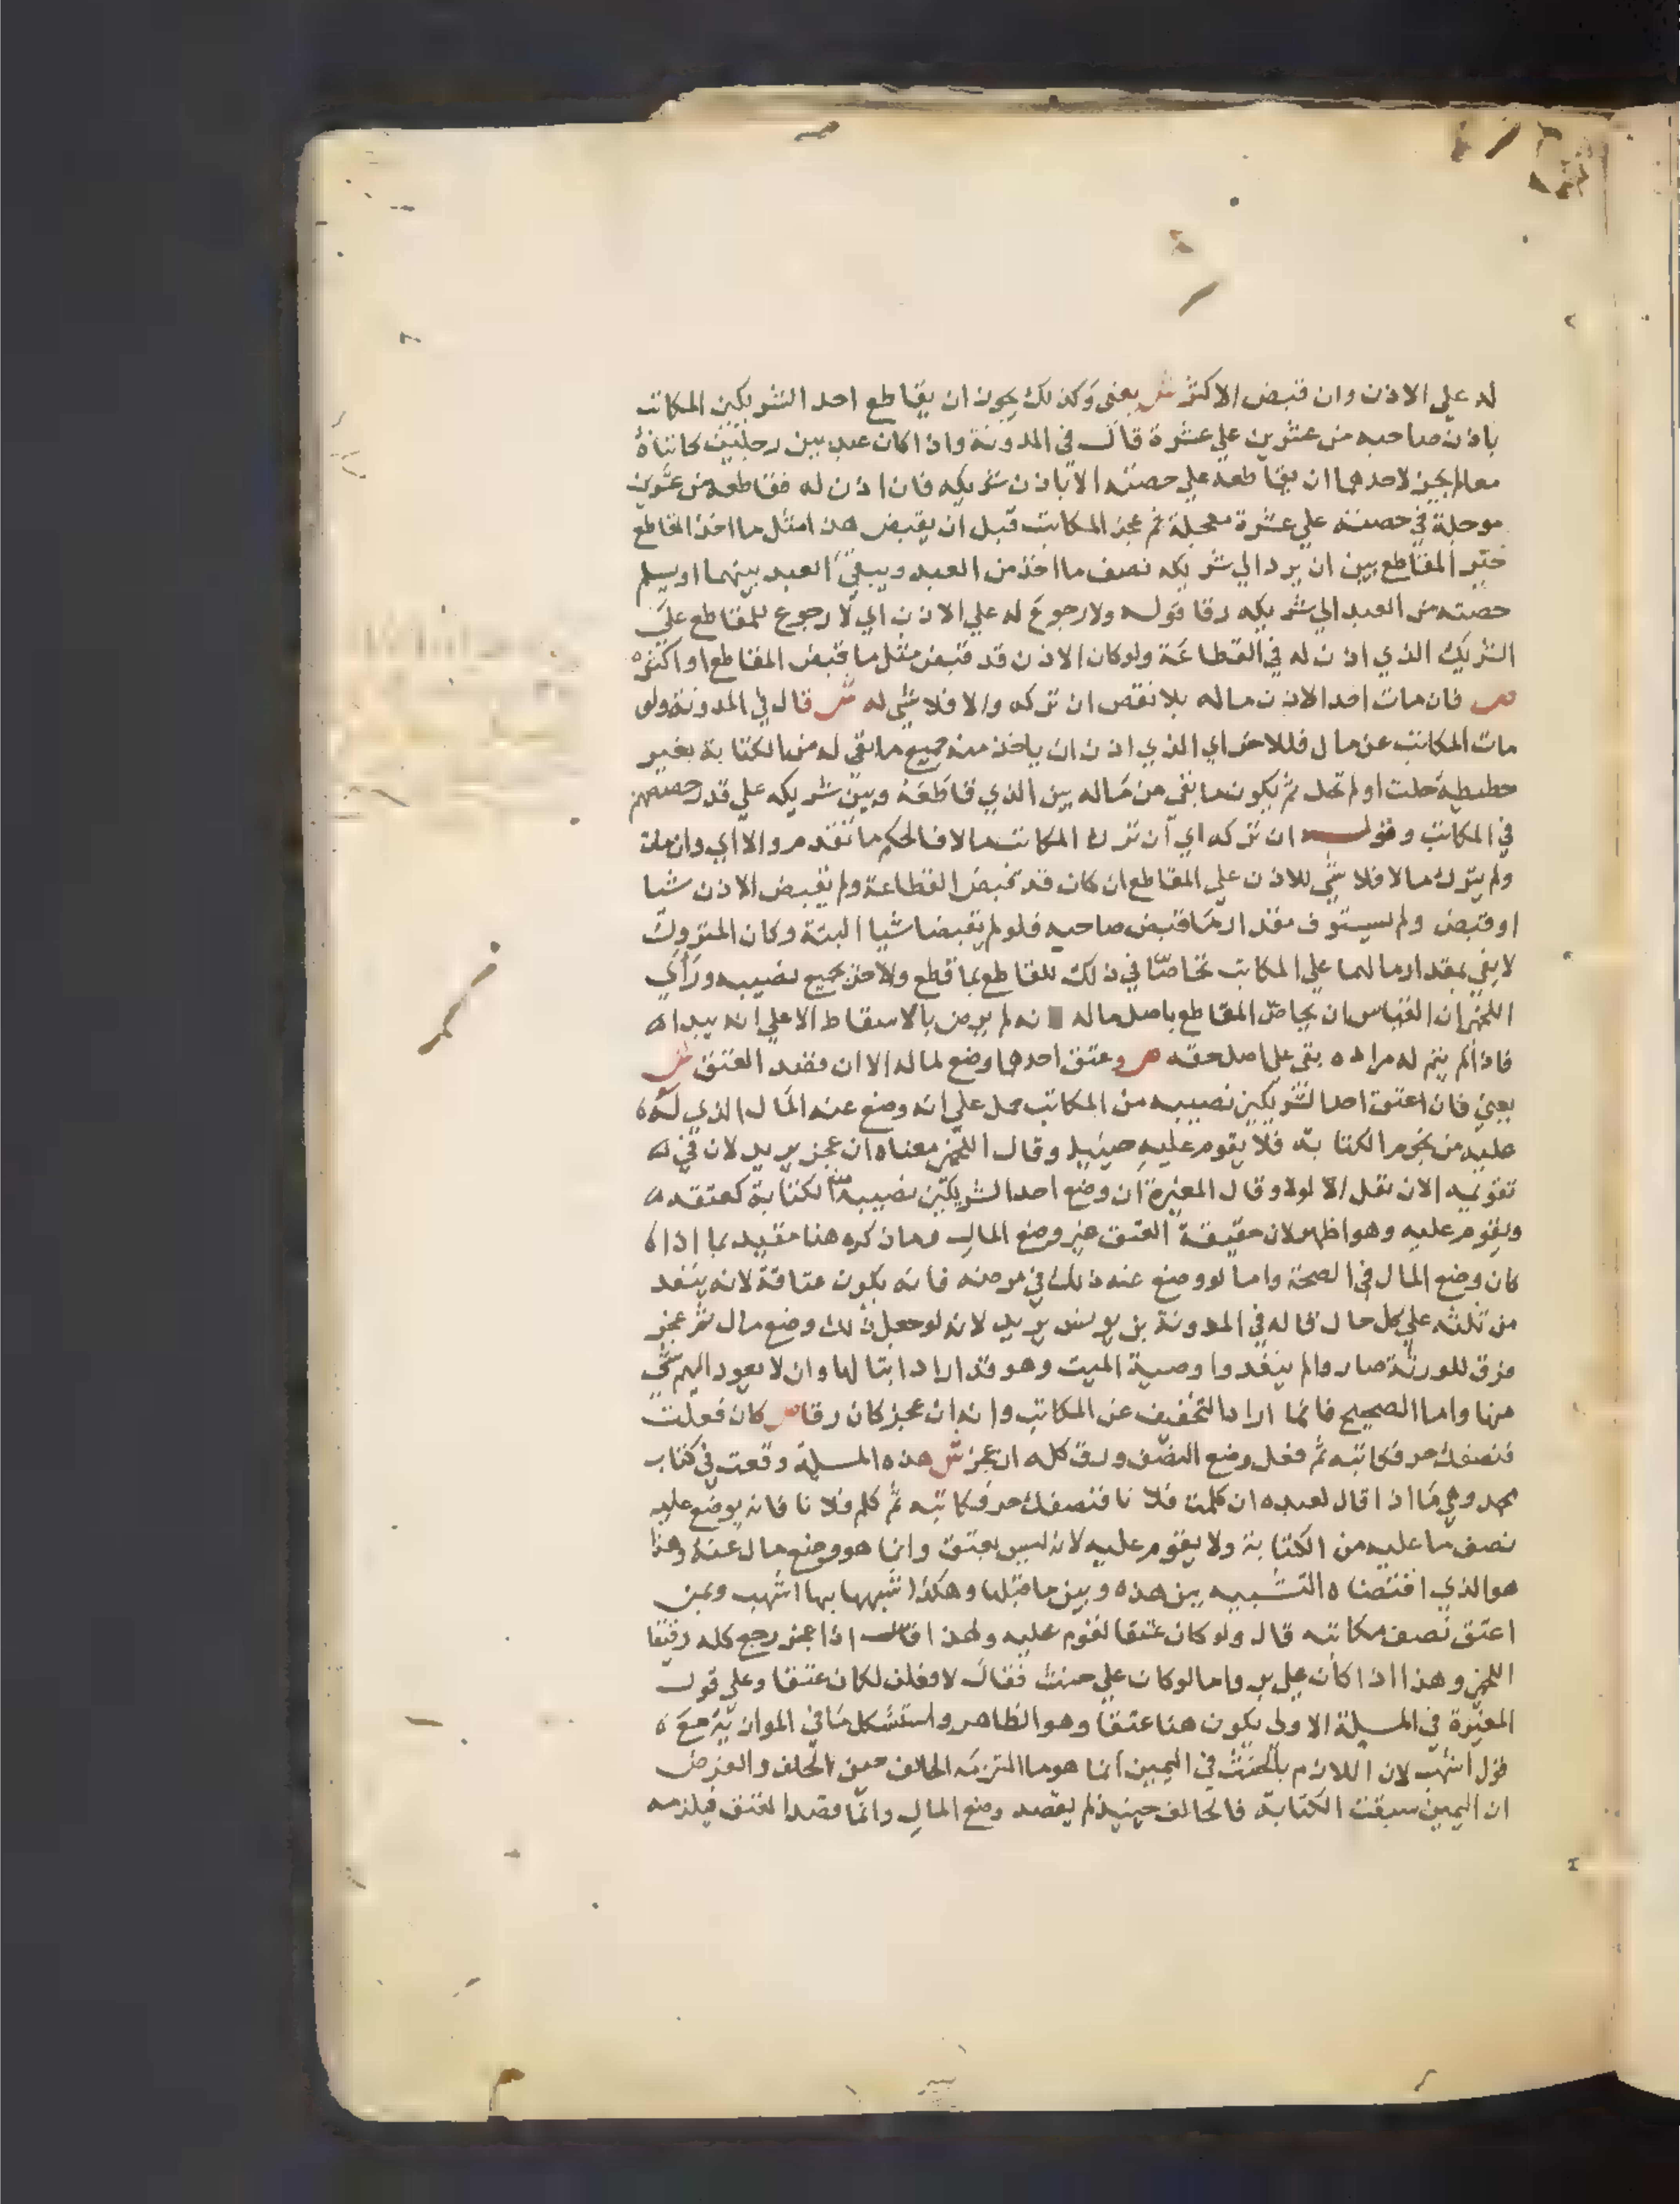 له علي الاذن وان قبض الاكثر ش يعني وكذلك يجوز ان يقاطع احد الشريكين المكاتب
باذن صاحبه من عشرين علي عشرة قال في المدونة واذا كان عبد بين رجلين كاتباه
معا لم يجز لاحدهما ان يقاطعه علي حصته الا باذن شريكه فان اذن له فقاطعه من عشرين
موجلة في حصته علي عشرة معجلة ثم عجز المكاتب قبل ان يقبض هذا مثل ما اخذ القاطع
خير المقاطع بين ان يرد الي شريكه نصف ما اخذ من العبد ويبقي العبد بينهما او يسلم
حصته من العبد الي شريكه رقا قوله ولا رجوع له علي الاذن اي لا رجوع للمقاطع علي
الشريك الذي اذن له في القطاعة ولو كان الاذن قد قبض مثل ما قبض المقاطع او اكثره
ص فان مات اخذ الاذن ماله بلا نقص ان تركه والا فلا شي له ش قال في المدونة ولو
مات المكاتب عن مال فللاخر اي الذي اذن ان ياخذ منه جميع ما بقي له من الكتابة بغير
حطيطة حلت او لم تحل ثم يكون ما بقي من ماله بين الذي قاطعه وبين شريكه علي قدر حصصهم
في المكاتب وقوله ان تركه اي ان ترك المكاتب مالا فالحكم ما تقدم والا اي وان مات
ولم يترك مالا فلا شي للاذن علي المقاطع ان كان قد قبض القطاعة ولم يقبض الاذن شيا
او قبض ولم يستوف مقدار ما قبض صاحبه فلو لم يقبضا شيا البتة وكان المتروك
لا يفي بمقدار مالهما علي المكاتب تحاصا في ذلك للقاطع بما قطع ولاخر جميع نصيبه وراي
اللخمي ان القياس ان يحاص المقاطع باصل ماله نه لم يرض بالاسقاط الا علي انه يبدا ه
فاذا لم يتم له مراده بقي علي اصل حقه ص وعتق احدهما وضع لماله الا ان قصد العتق ش
يعني فان اعتق احد الشريكين نصيبه من المكاتب حمل علي انه وضع عنه المال الذي له ه
عليه من نجوم الكتابة فلا يقوم عليه حينيد وقال اللخمي معناه ان عجز يريد لان في ه
تقويمه الان نقل الا لولا وقال المغيرة ان وضع احد الشريكين نصيبه منه الكتابة كعتقه ه
ويقوم عليه وهو اظهر لان حقيقة العتق غير وضع المال وما ذكره هنا مقيد بما اذا ه
كان وضع المال في الصحة واما لو وضع عنه ذلك في مرضه فانه يكون عتاقة لانه ينفد
من ثلثه علي كل حال قاله في المدونة بن يونس يريد لانه لو جعل ذلك وضع مال ثم عجز
فرق للورثة صار والم ينفدوا وصية الميت وهو قد اراد ابتالها وان لا يعود اليهم شي
منها واما الصحيح فانما اراد التخفيف عن المكاتب وانه ان عجز كان رقا ص كان فعلت
فنصفك حر فكاتبه ثم فعل وضع النصف ورق كله ان عجز ش هذه المسلة وقعت في كتاب
محمد وهي ما اذا قال لعبده ان كلمت فلانا فنصفك حر فكاتبه ثم كلم فلانا فانه يوضع عليه
نصف ما عليه من الكتابة ولا يقوم عليه لانه ليس بعتق وانما هو وضع مال عنه وهذا
هو الذي اقتضاه التشبيه بين هذه وبين ما قبلها وهكذا شبهها بها اشهب وبمن
اعتق نصف مكاتبه قال ولو كان عتقا لقوم عليه ولهذا قال اذا عجز رجع كله رقيقا
اللخمي وهذا اذا كان علي بر واما لو كان علي حنث فقال لافعلن لكان عتقا وعلي قول
المغيرة في المسلة الاولي يكون هنا عتقا وهو الظاهر واستشكل ما في الموازية مع ه
قول اشهب لان اللازم بالحنث في اليمين انما هو ما التزمه الحالف حين الحلف والفرض
ان اليمين سبقت الكتابة فالحالف حينيذ لم يقصد وضع المال وانما قصد العتق فيلزمه